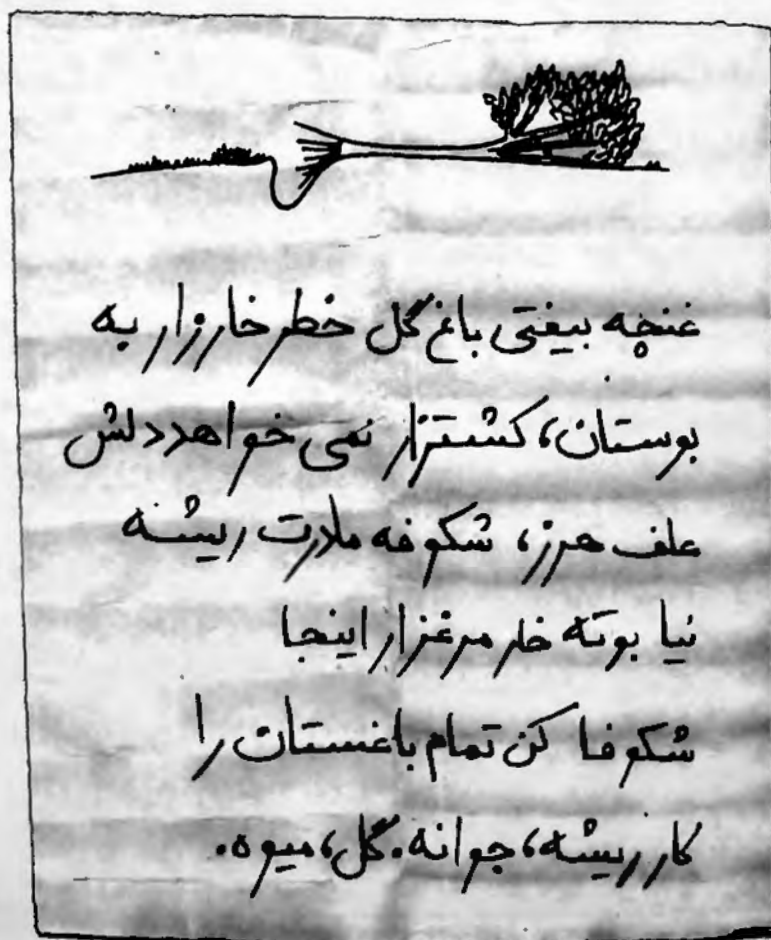 غنچه بیفتی باغ گل خطر خارزار به
بوستان، کشتزار نمی خواهد دلش
علف هرز، شکوفه مادرت ریشه
نیا بوته خار مرغزار اینجا
شکوفا کن تمام باغستان را
کار ریشه، جوانه. گل، میوه.